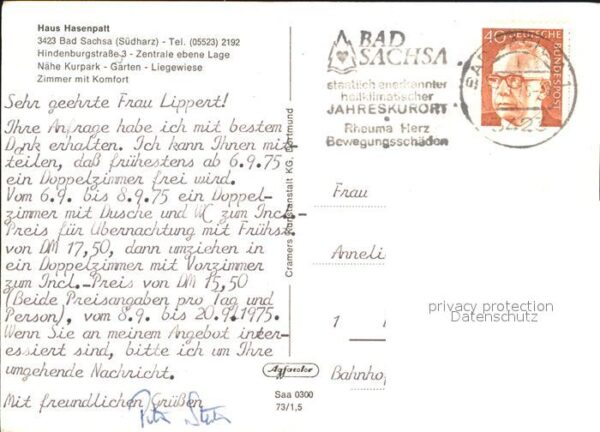 Haus Hasenpatt
3423 Bad Sachsa (Südharz) - Tel. (05523) 2192
Hindenburgstraße 3 - Zentrale ebene Lage
Nähe Kurpark - Garten - Liegewiese
Zimmer mit Komfort
Sehr geehrte Frau Lippert!
Ihre Anfrage habe ich mit bestem
Dank erhalten. Ich kann Ihnen mit-
teilen, daß frühestens ab 6.9.75
ein Doppelzimmer frei wird.
Vom 6.9. bis 8.9.75 ein Doppel-
zimmer mit Dusche und WC zum Incl.-
Preis für Übernachtung mit Frühst.
von DM 17,50, dann umziehen in
ein Doppelzimmer mit Vorzimmer
zum Incl.-Preis von DM 15,50
(Beide Preisangaben pro Tag und
Person), vom 8.9. bis 20.9.1975.
Wenn Sie an meinem Angebot inter-
essiert sind, bitte ich um Ihre
umgehende Nachricht.
Mit freundlichen Grüßen
Cramers Kunstanstalt KG, Dortmund
Agfacolor
Saa 0300
73/1,5
BAD
SACHSA
staatlich anerkannter
heilklimatischer
JAHRESKURORT
Rheuma Herz
Bewegungsschäden
40
DEUTSCHE
BUNDESPOST
3423
Frau
Anneli
1
Bahnhof
privacy protection
Datenschutz